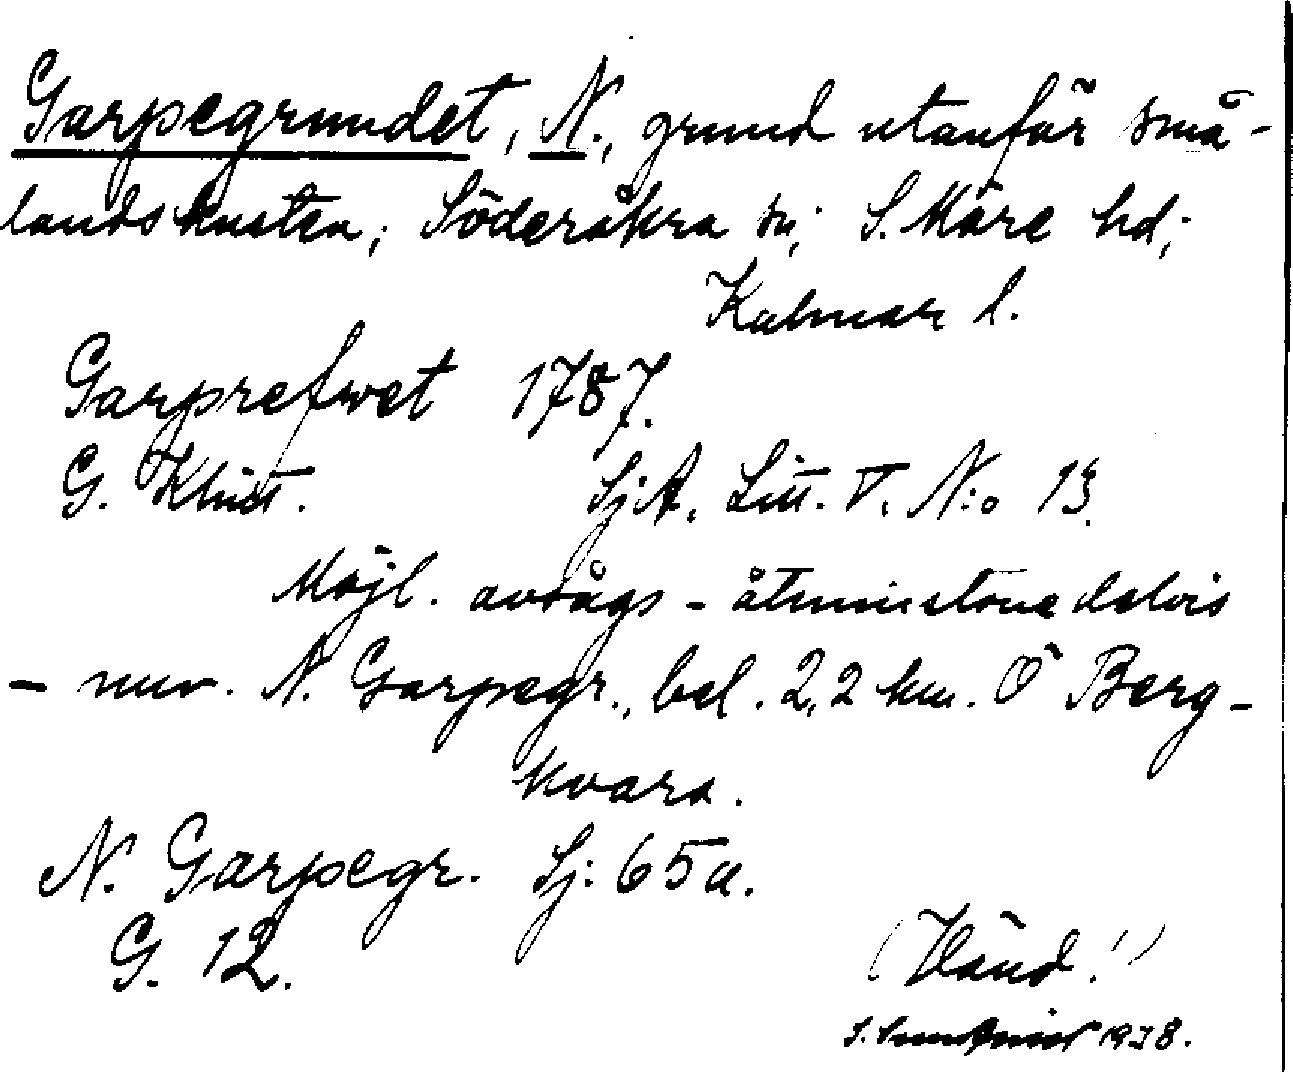 Garpegrundet, N., grund utanför små-
landskusten; Söderåkra sn; S. Möre hd;
Kalmar l.
Garprefwet 1787.
G. Klint. Sj.A. Litt. V. N:o 13.
Möjl. avsågs - åtminstone delvis
- nuv. N. Garpegr., bel. 2,2 km. Ö Berg-
kvara.
N. Garpegr. Sj: 65a.
G. 12.
(Vänd!)
S. 1938.